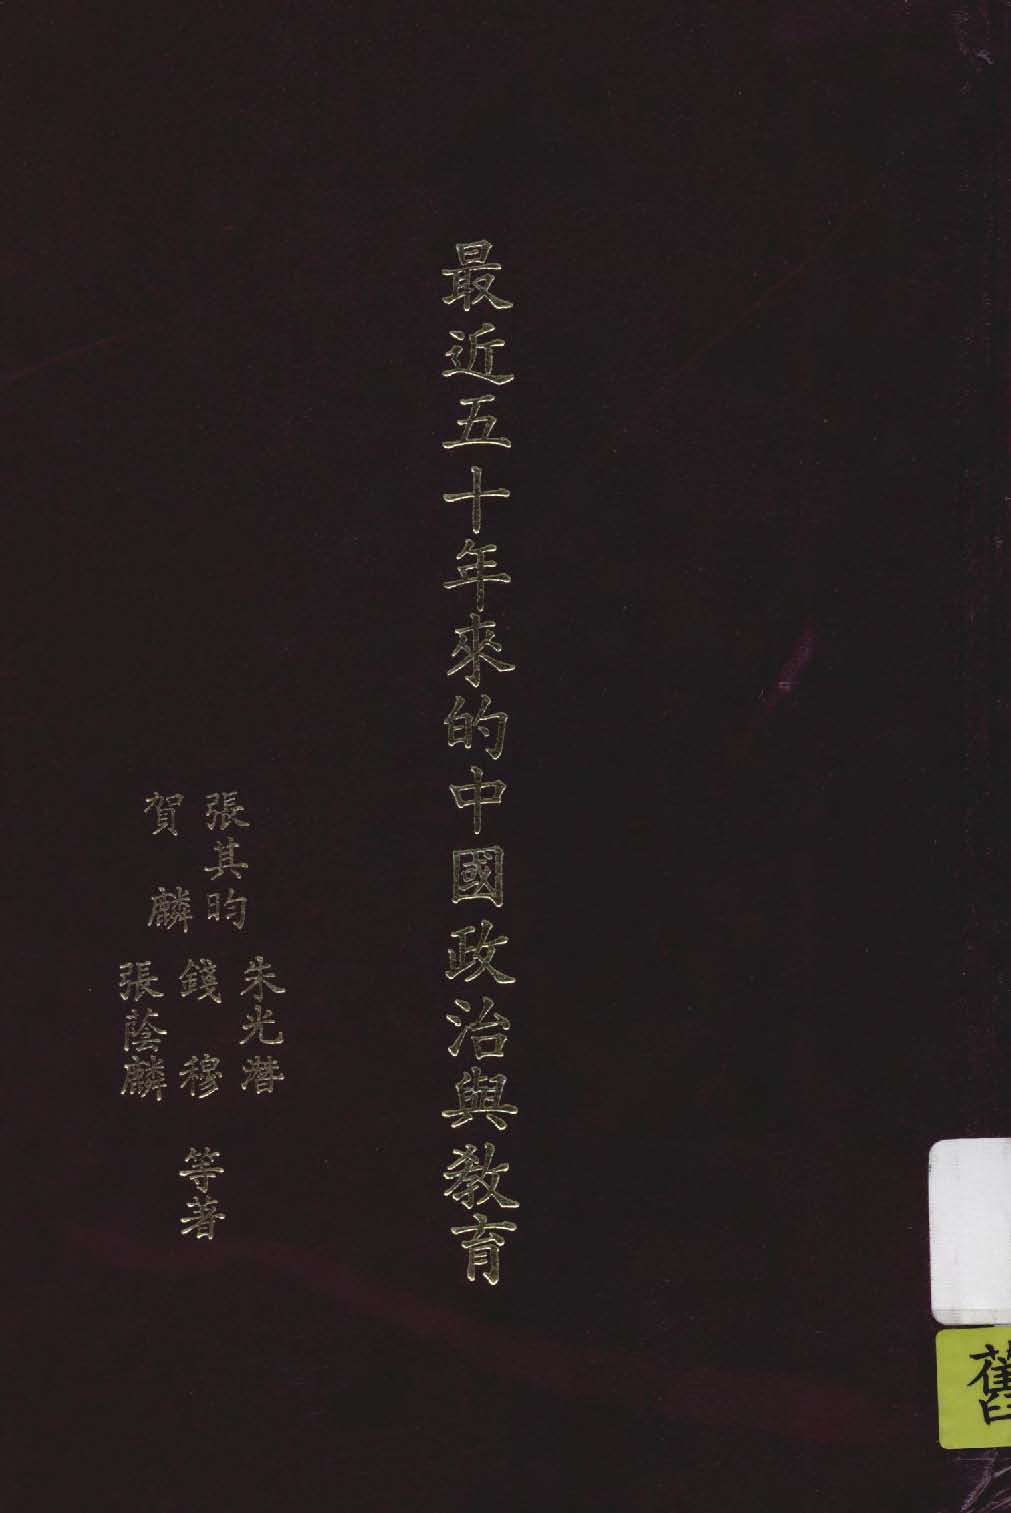 最近五十年來的中國政治與教育
朱光潛
張其昀
錢穆
賀麟
張蔭麟
等著
舊